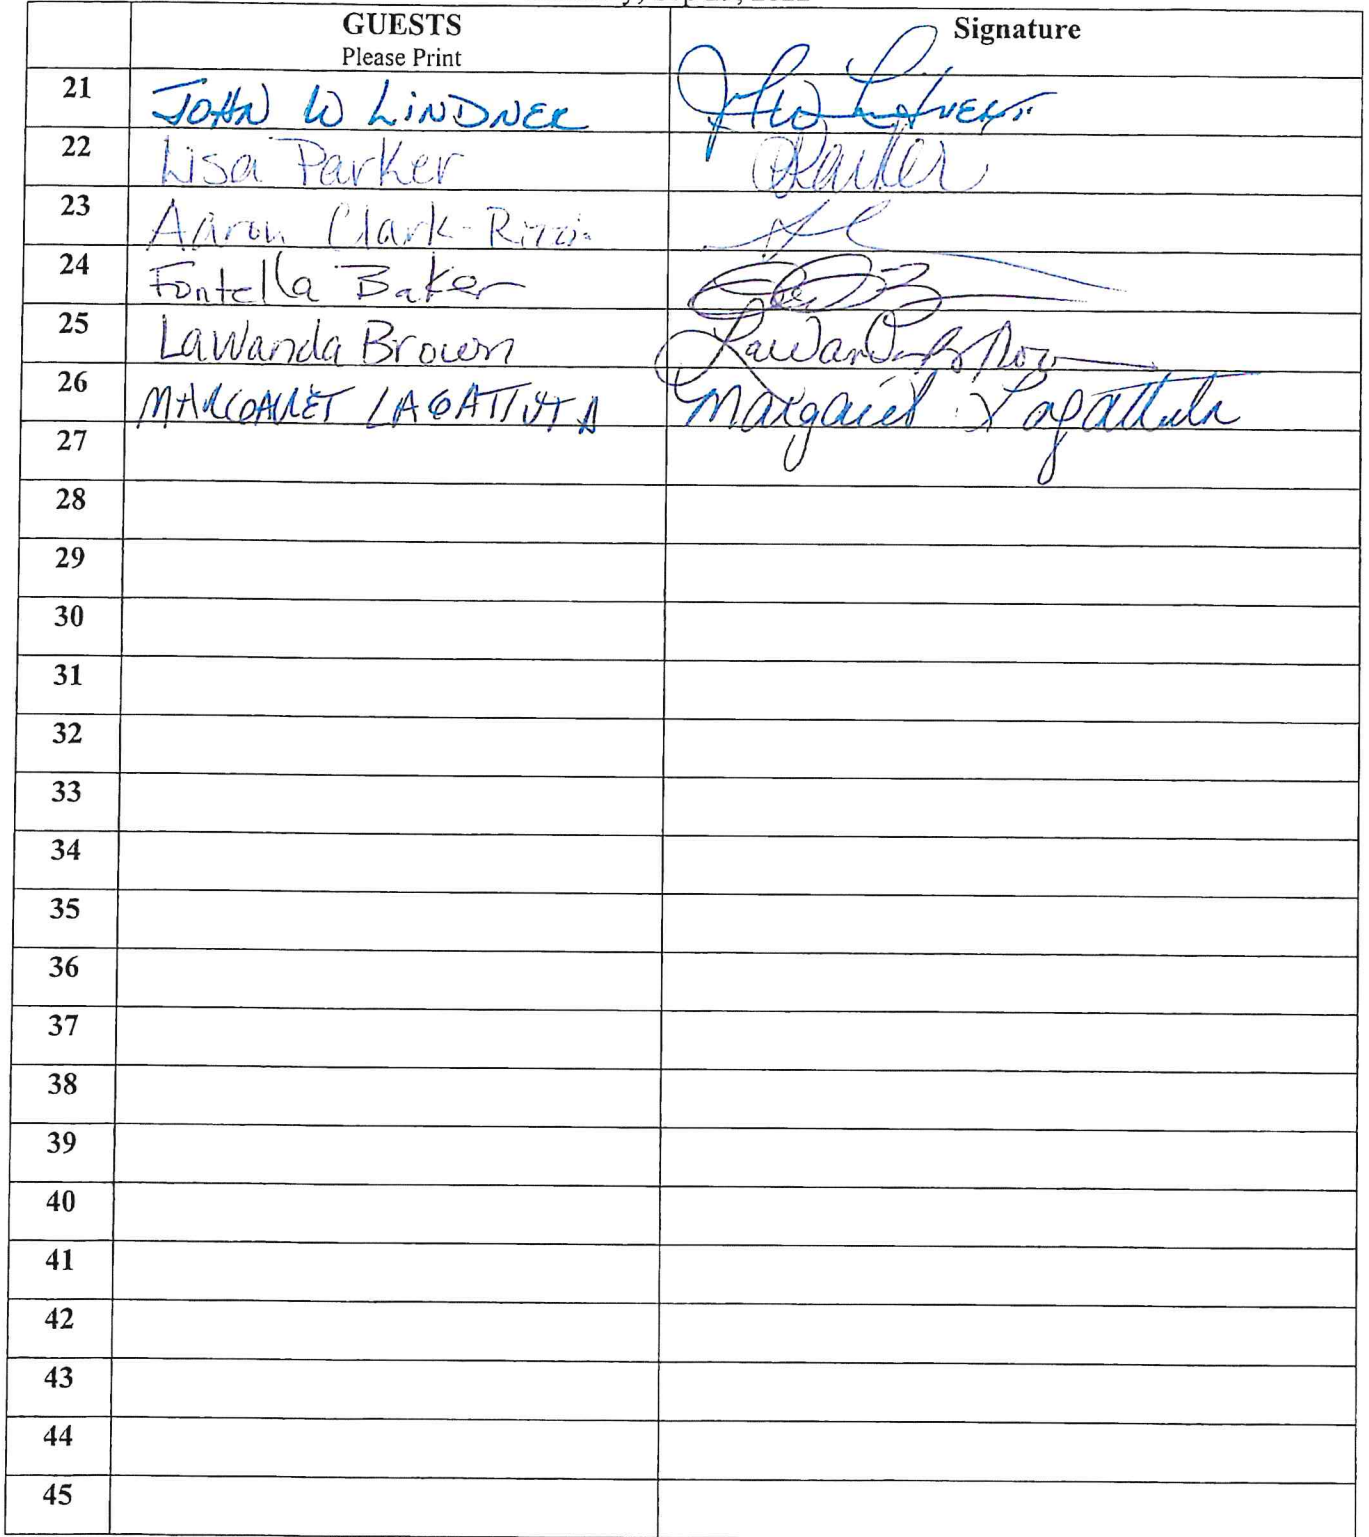 GUESTS Signature
Please Print
21 JOHN W LINDNER
22 Lisa Parker Parker
23 Aaron Clark-
24 Fontella Baker
25 LaWanda Brown LaWanda Brown
26 MARGARET LAGATTUTA Margaret Lagattuta
27
28
29
30
31
32
33
34
35
36
37
38
39
40
41
42
43
44
45